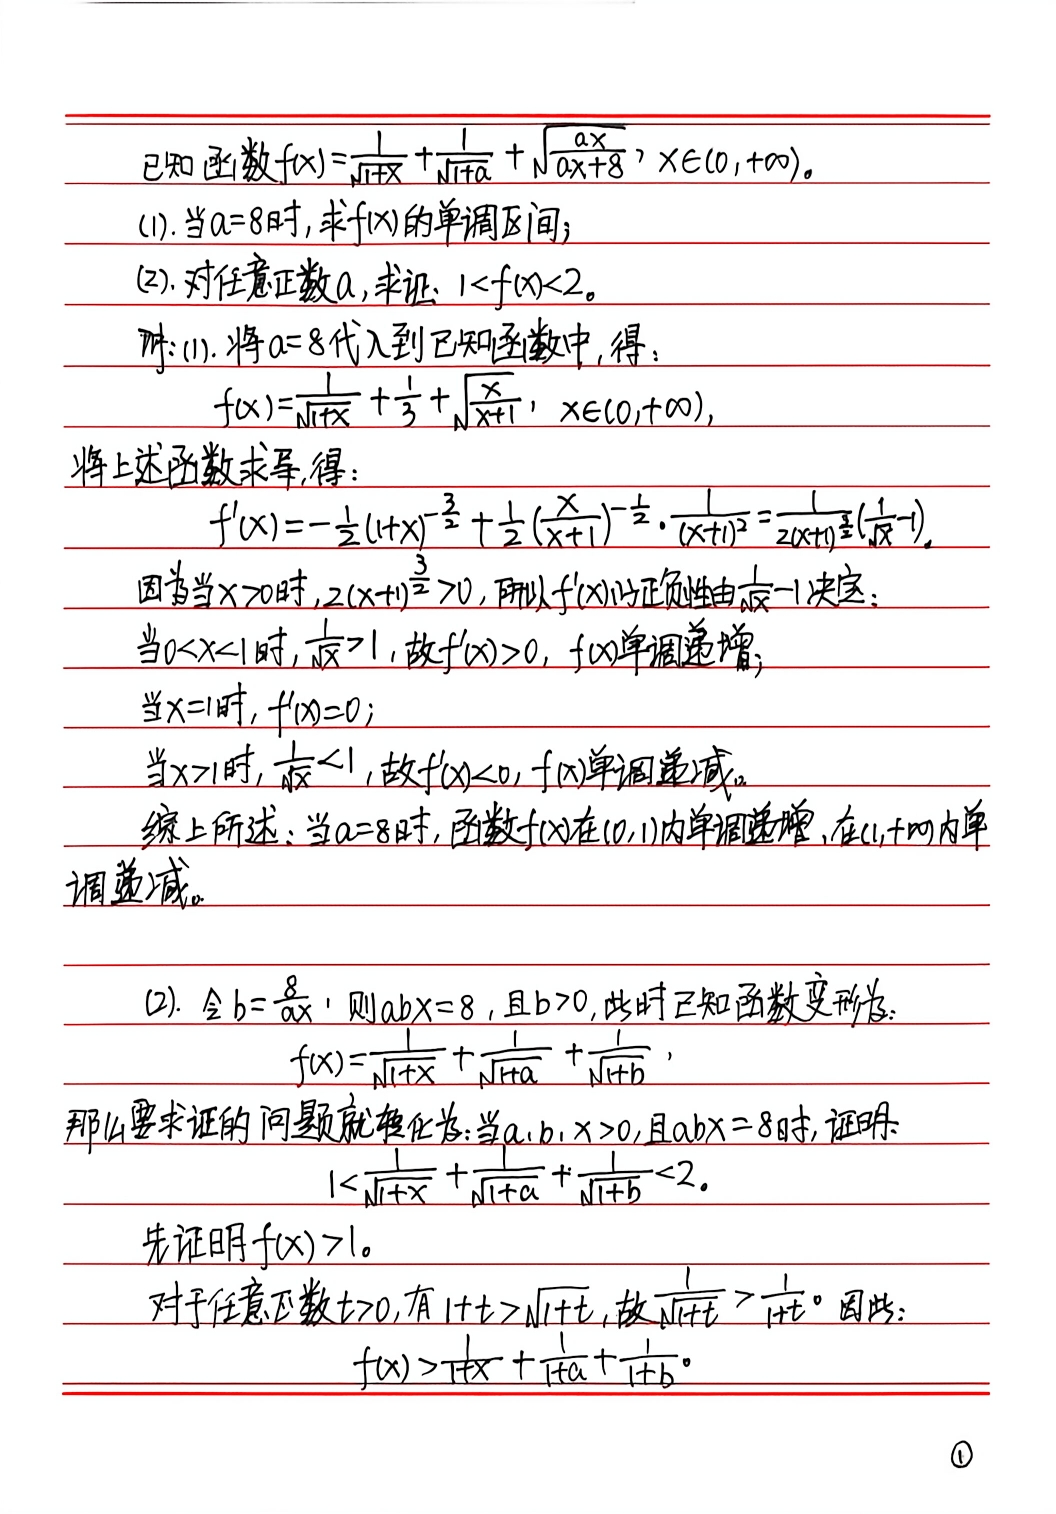 已知函数f(x)=1/√(1+x)+1/√(1+a)+√(ax/(ax+8)), x∈(0,+∞)。
(1).当a=8时,求f(x)的单调区间;
(2).对任意正数a,求证:1<f(x)<2。
解:(1).将a=8代入到已知函数中,得:
f(x)=1/√(1+x)+1/3+√(x/(x+1)), x∈(0,+∞),
将上述函数求导,得:
f'(x)=-1/2(1+x)^(-3/2)+1/2(x/(x+1))^(-1/2)·1/(x+1)²=1/(2(x+1)^(3/2))(1/√x-1)。
因为当x>0时,2(x+1)^(3/2)>0,所以f'(x)的正负性由1/√x-1决定:
当0<x<1时,1/√x>1,故f'(x)>0,f(x)单调递增;
当x=1时,f'(x)=0;
当x>1时,1/√x<1,故f'(x)<0,f(x)单调递减。
综上所述:当a=8时,函数f(x)在(0,1)内单调递增,在(1,+∞)内单
调递减。
(2).令b=8/(ax),则abx=8,且b>0,此时已知函数变形为:
f(x)=1/√(1+x)+1/√(1+a)+1/√(1+b),
那么要求证的问题就转化为:当a,b,x>0,且abx=8时,证明:
1<1/√(1+x)+1/√(1+a)+1/√(1+b)<2。
先证明f(x)>1。
对于任意正数t>0,有1+t>√(1+t),故1/√(1+t)>1/(1+t)。因此:
f(x)>1/(1+x)+1/(1+a)+1/(1+b)。
①